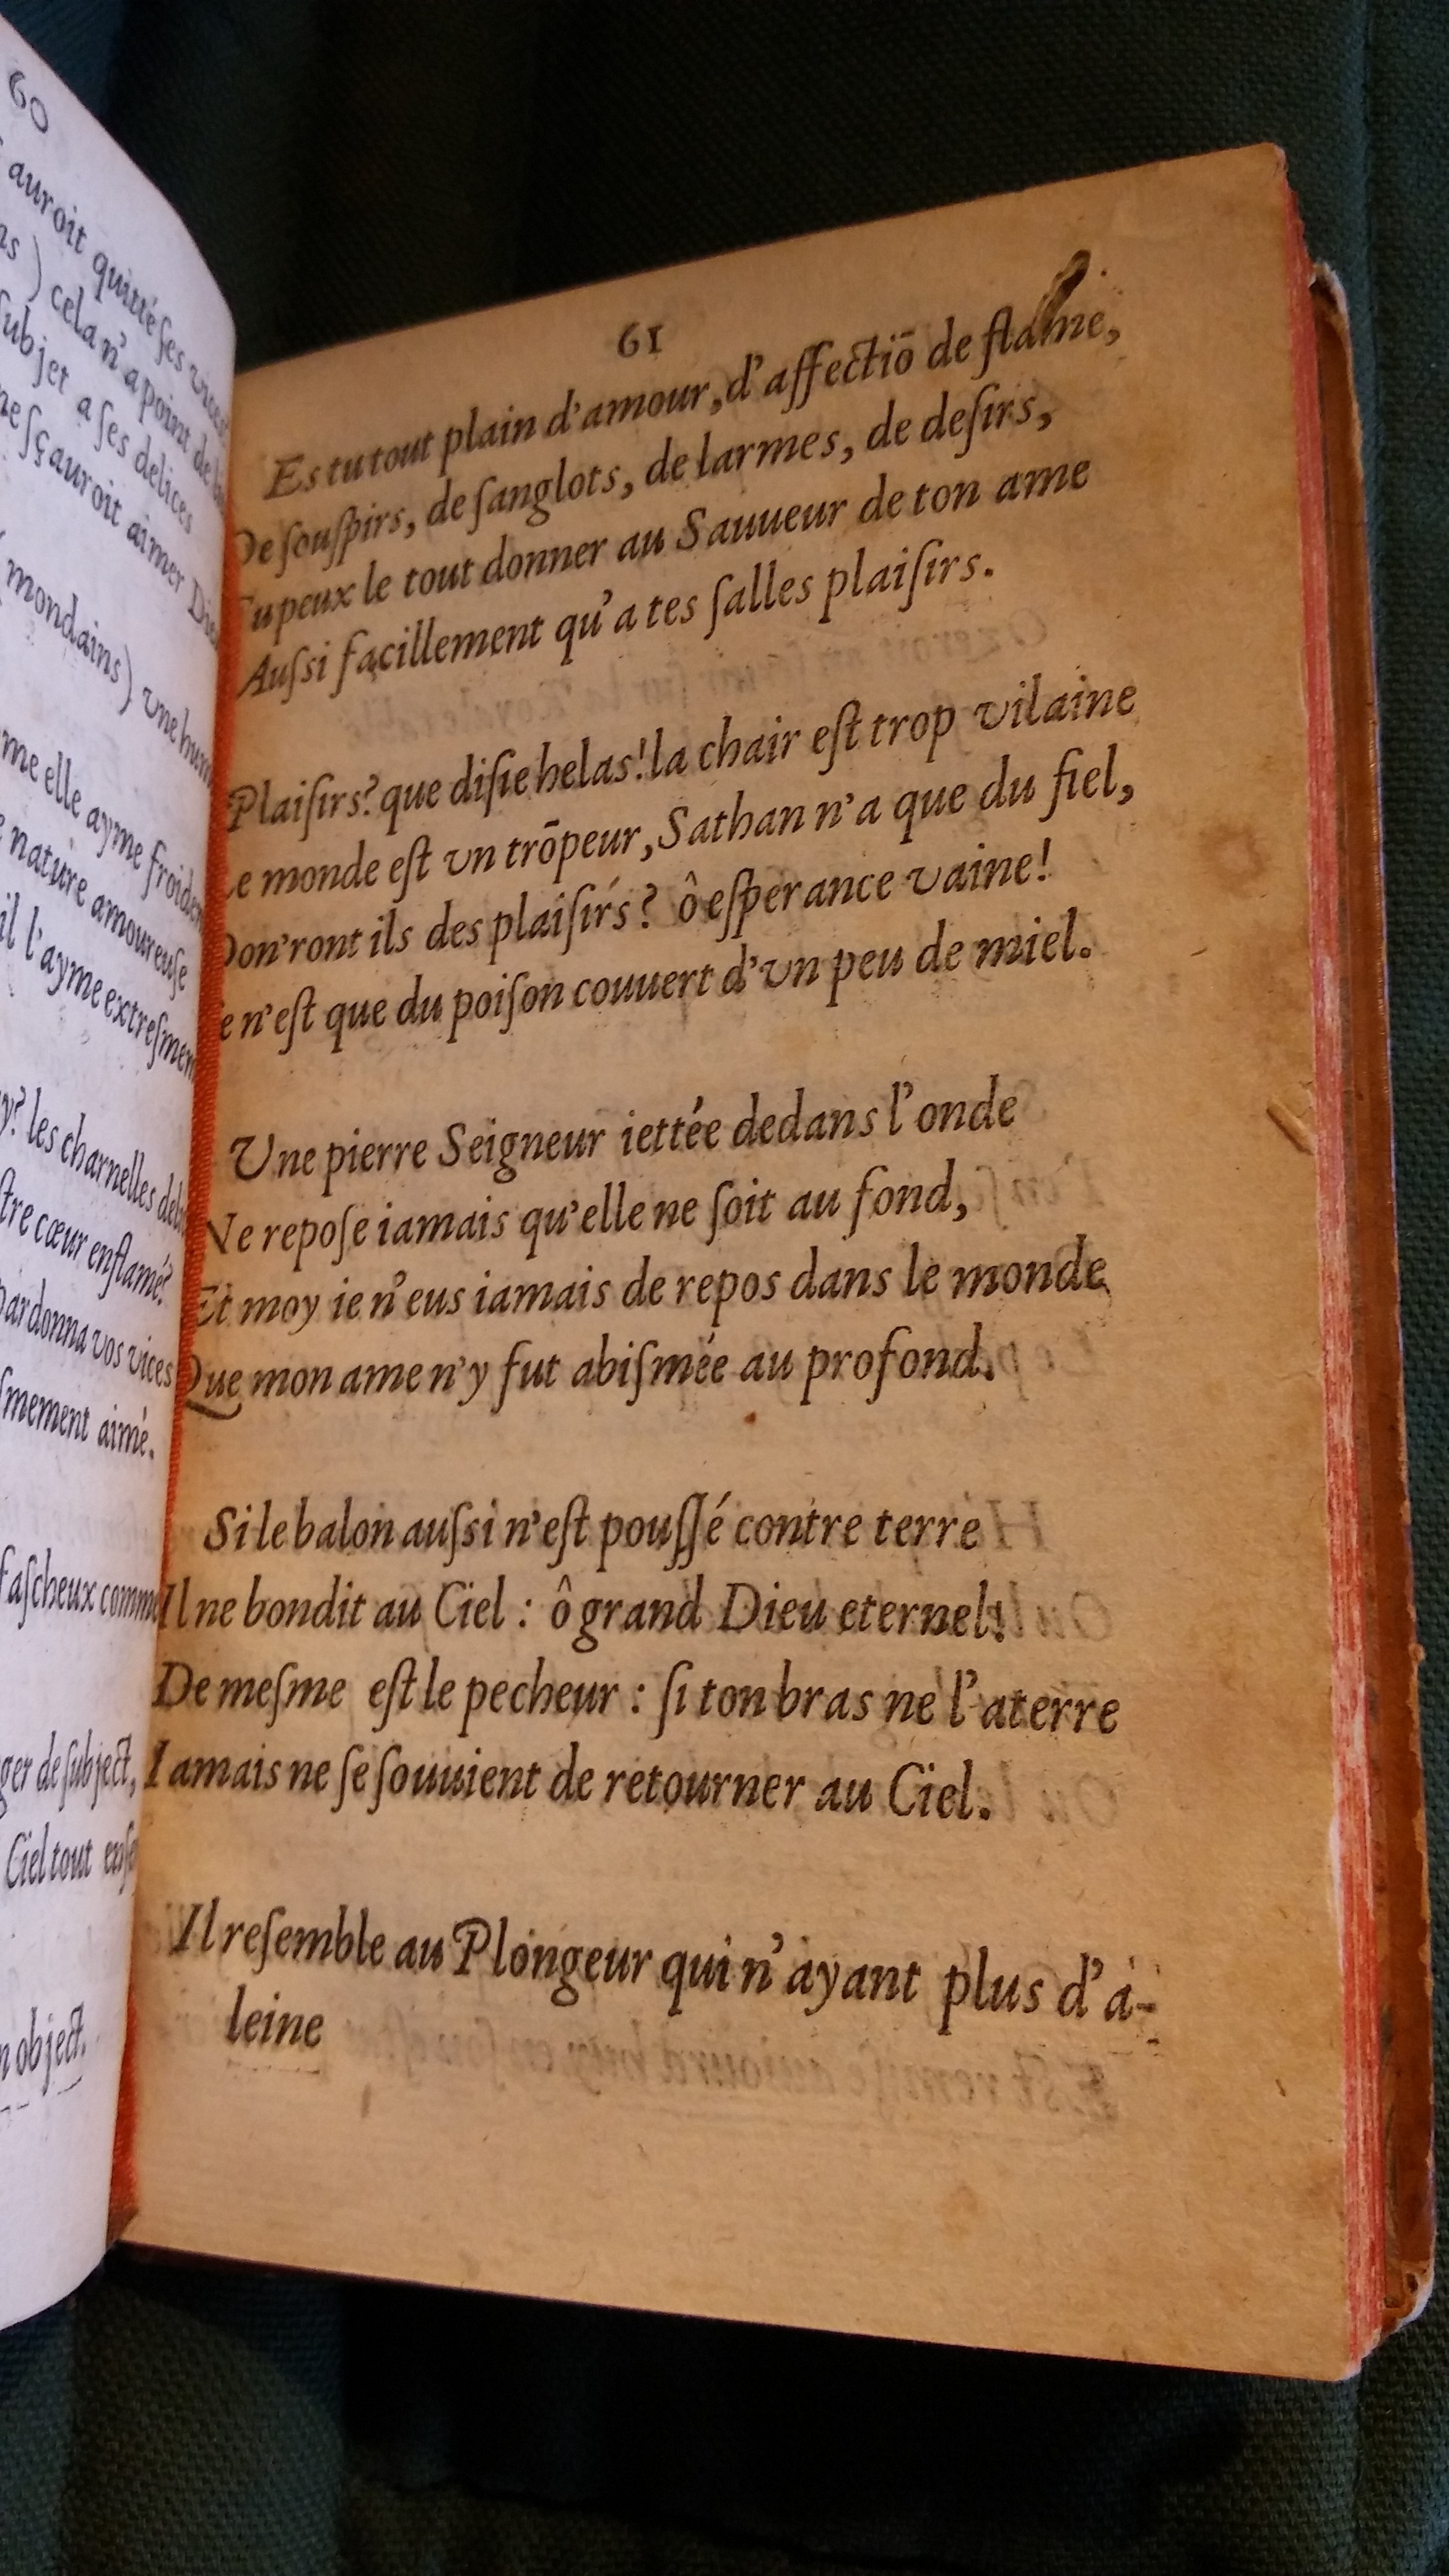 60
auroit quitté ses vices
ns) cela n'a point de
subjet a ses delices
ne sçauroit aimer Dieu
mondains) vne hum
me elle ayme froide
nature amoureuse
il l'ayme extresmem
y? les charnelles
stre cœur enflamé?
pardonna vos vices
smement aimé.
fascheux comme
ger de subject,
Ciel tout
object.
61
Es tu tout plain d'amour, d'affectiõ de flame,
De souspirs, de sanglots, de larmes, de desirs,
Tu peux le tout donner au Sauueur de ton ame
Aussi facillement qu'a tes salles plaisirs.
Plaisirs? que disie helas! la chair est trop vilaine
Le monde est vn trõpeur, Sathan n'a que du fiel,
Don'ront ils des plaisirs? ô esperance vaine!
Ce n'est que du poison couuert d'vn peu de miel.
Une pierre Seigneur iettée dedans l'onde
Ne repose iamais qu'elle ne soit au fond,
Et moy ie n'eus iamais de repos dans le monde
Que mon ame n'y fut abismée au profond.
Si le balon aussi n'est poussé contre terre
Il ne bondit au Ciel : ô grand Dieu eternel!
De mesme est le pecheur : si ton bras ne l'aterre
Iamais ne se souuient de retourner au Ciel.
Il resemble au Plongeur qui n'ayant plus d'a-
leine